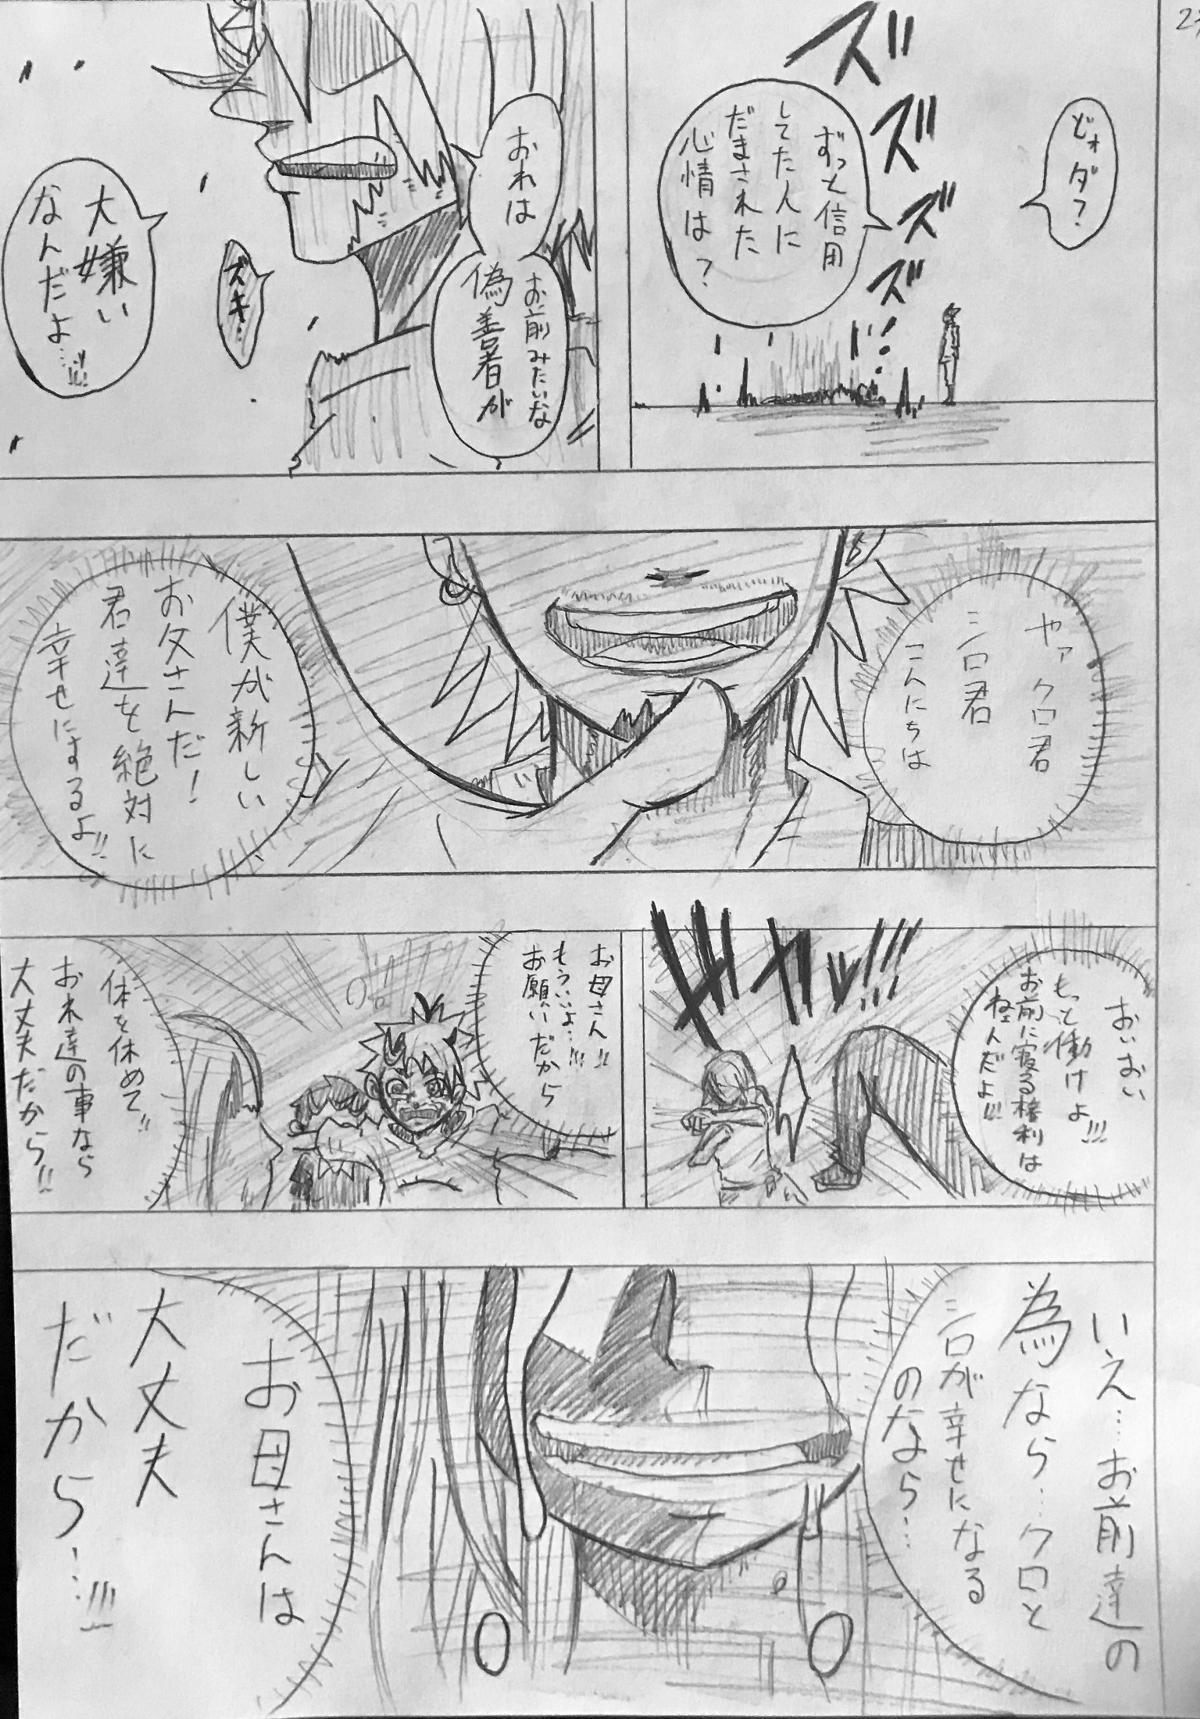 ズズズズ…
どォダ?
ずっと信用
してた人に
だまされた
心情は?
おれは
お前みたいな
偽善者が
ズキ…
大嫌い
なんだよ…!!!
ヤァクロ君
シロ君
こんにちは
僕が新しい
お父さんだ!
君達を絶対に
幸せにするよ!!
おいおい
もっと働けよ!!!
お前に寝る権利は
ねェんだよ!!!
ドカッ!!!
お母さん!!
もういいよ…!!!
お願いだから
体を休めて!!
おれ達の事なら
大丈夫だから!!
いえ…お前達の
為なら…クロと
シロが幸せになる
のなら…
お母さんは
大丈夫
だから…!!!